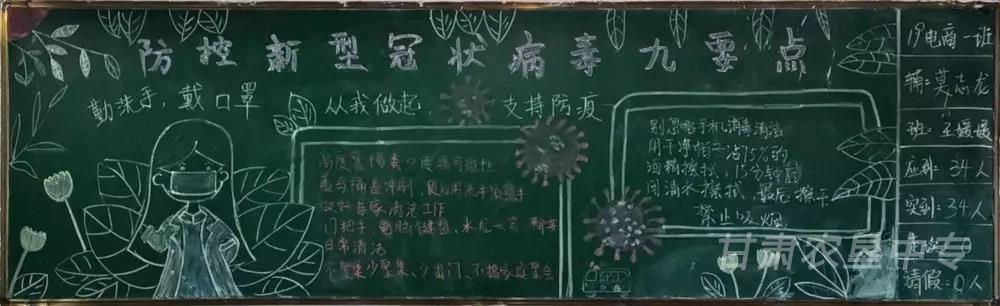 防控新型冠状病毒九要点
勤洗手，戴口罩
从我做起
支持防疫
高度
洗手
做好居家清洁工作
门把手，电脑键盘、水龙头
日常清洁
不聚集少聚集、少出门、不搞家庭聚会
别忽略手机消毒清洁
用干净帕子沾75%的
酒精擦拭，15分钟后
用清水擦拭，最后擦干
禁止吸烟
19电商一班
辅：莫志龙
班：王媛媛
应到：34人
实到：34人
请假：0人
甘肃农垦中专